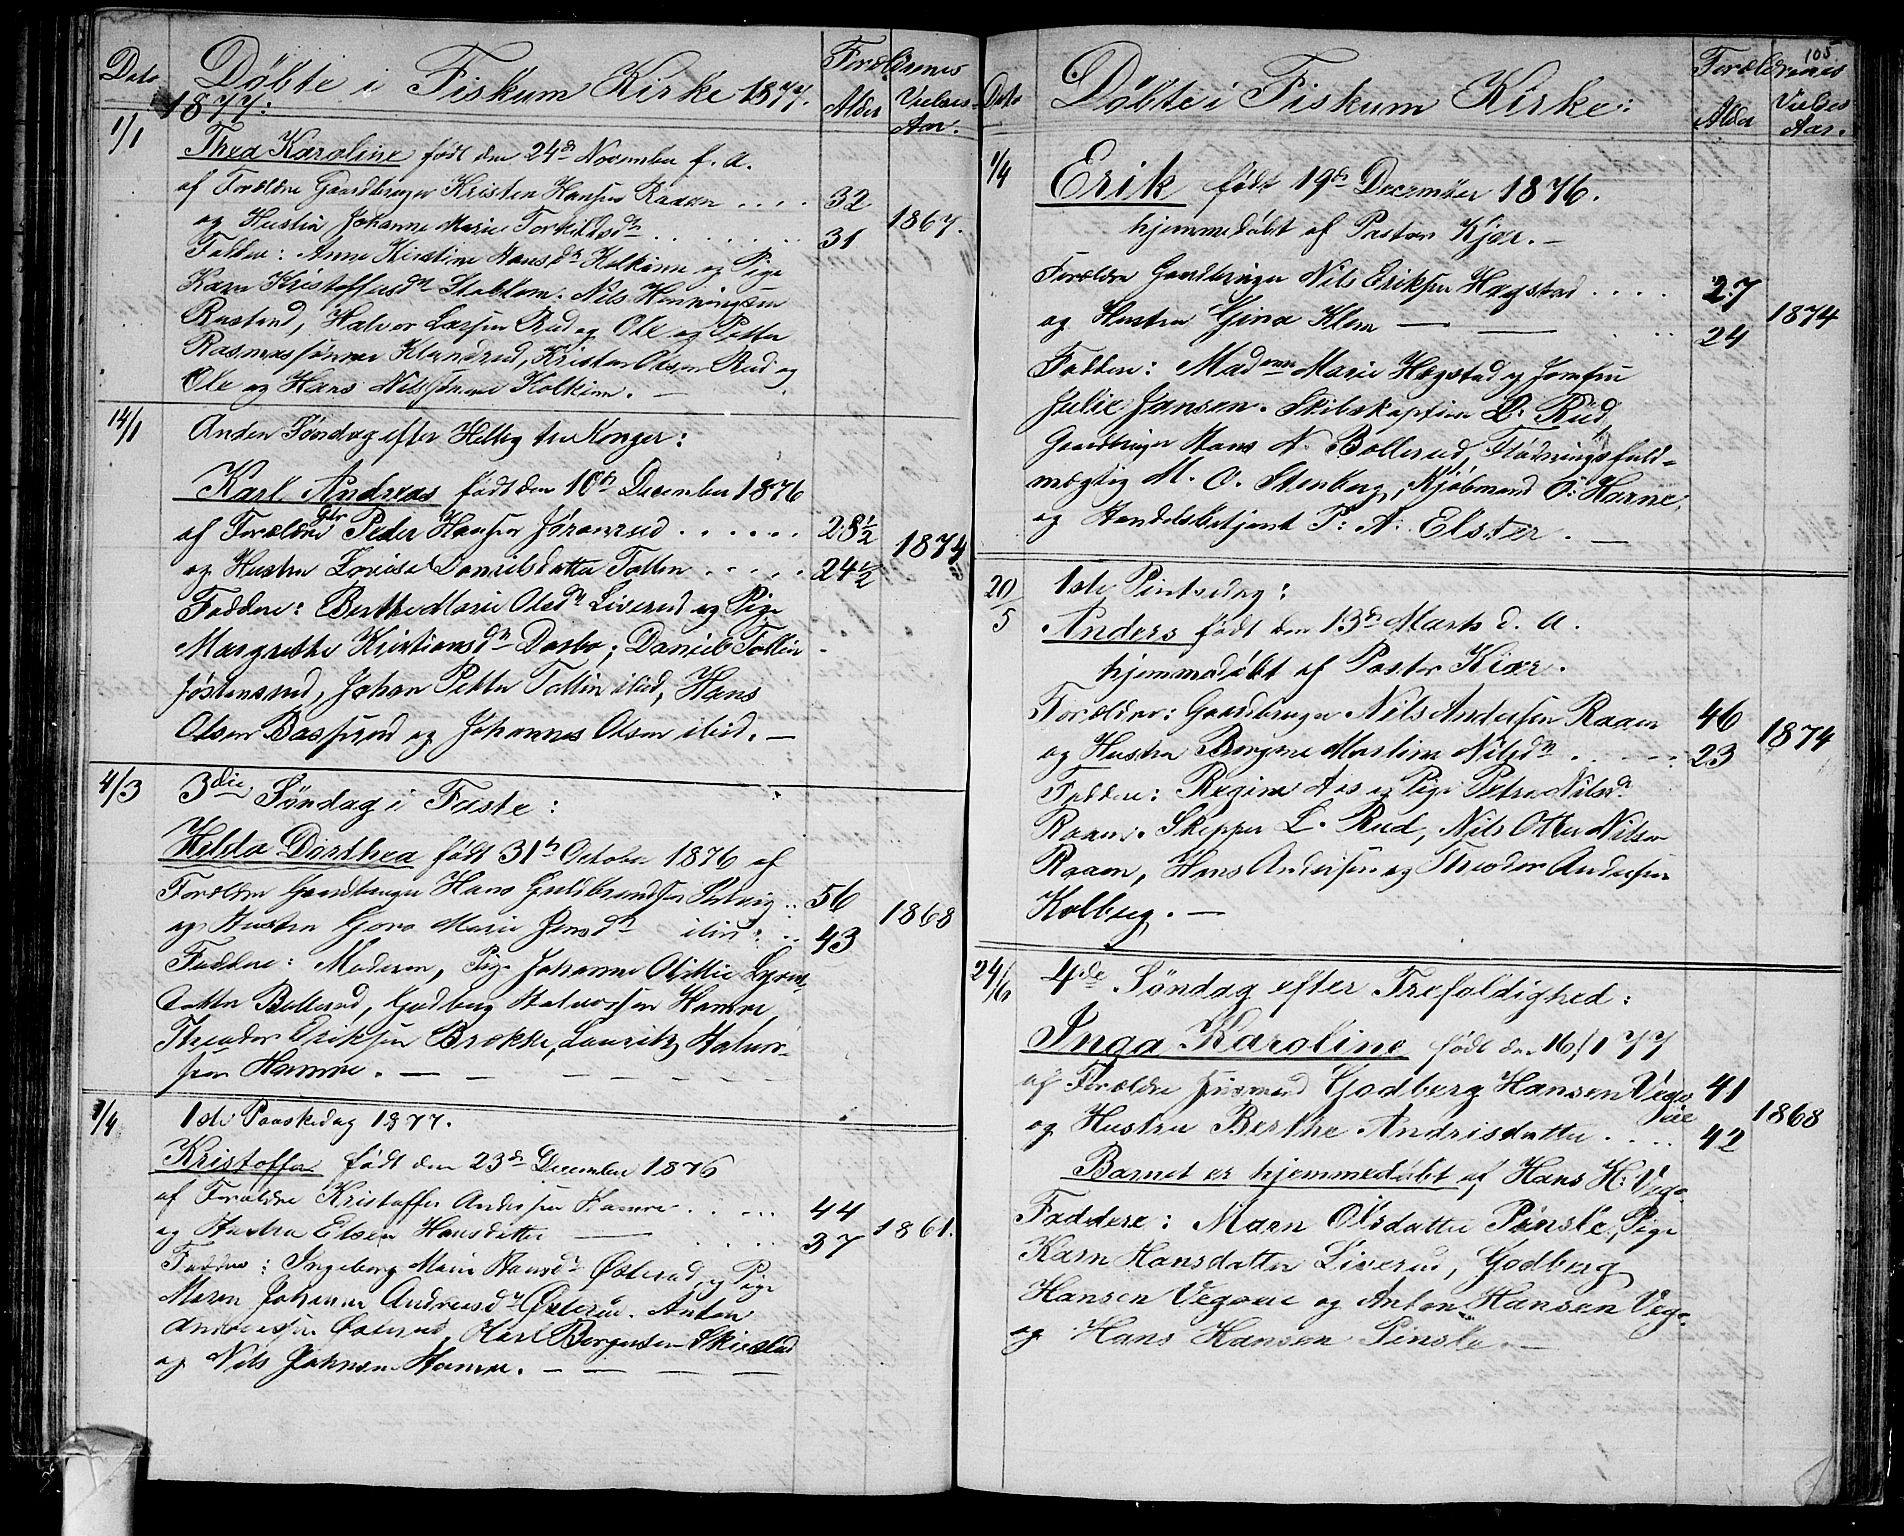 Dato
Döbte i Fiskum Kirke 1877.
Forældrenes
Alder
Vielses-Aar.
1877:
1/1
Thea Karoline født den 24de November f. A.
af Forældre Gaardbruger Kristen Hansen Raaen .... 32
1867.
og Hustru Johanne Marie Torkildsdtr ..... 31
Faddere: Anne Kirstine Hansdtr Kolkinn og Pige
Karen Kristoffersdtr Stablum. Nils Henningsen
Rustand, Halvor Larsen Rud og Ole og Petter
Rasmussønner Klundrud, Kristen Olsen Rud og
Ole og Hans Nilssønner Kolkinn. —
14/1
Anden Söndag efter Hellig tre Konger:
Karl Andreas født den 10de December 1876
af Forældre Gbr Peder Hansen Jöranrud ...... 28 1/2
1874
og Hustru Lovise Danielsdatter Tollin ..... 24 1/2
Faddere: Berthe Marie Olsdtr Liverud og Pige
Margrethe Kristiansdtr Dosbo; Daniel Tollin
Jöstensrud, Johan Petter Tollin ibid, Hans
Olsen Basserud og Johannes Olsen ibid. —
4/3
3die Söndag i Faste:
Hilda Dorthea født 31te October 1876 af
Forældre Gaardbruger Hans Guldbrandsen .. 56
1868
og Hustru Gora Marie Jensdtr ibid: .. 43
Faddere: Moderen, Pige Johanne Olettie
datter Bollerud, Godberg Halvorsen Hamre,
Theodor Eriksen Brekke, Lauritz Halvor-
sen Hamre. — — — — — —
1/4
1ste Paaskedag 1877.
Kristoffer født den 23de December 1876
af Forældre Kristoffer Andersen Hamre ..... 44
1861.
og Hustru Elsen Hansdatter — .... 37
Faddere: Ingeborg Marie Hansdtr Østerud og Pige
Maren Johanne Andreasdtr Østerud. Anton
Andreassen Østerud, Karl Borgersen Skjelstad
og Nils Johnsen Hamre. — — — —
105
Dato
Döbte i Fiskum Kirke:
Forældrenes
Alder
Vielses Aar.
1/4
Erik født 19de December 1876.
hjemmedöbt af Pastor Kjær. —
Forældre Gaardbruger Nils Eriksen Hægstad .... 27
1874
og Hustru Gina Klem — — .. 24
Faddere: Madame Marie Hægstad og Jomfru
Julie Jansen. Skibskaptein L. Rud,
Gaardbruger Hans N. Bollerud, Flödningsfuld-
mægtig M. O. Stenberg, Kjöbmand O: Hamre,
og Handelsbetjent P: A. Elster. —
20/5
1ste Pintsedag:
Anders født den 13de Marts d. A.
hjemmedöbt af Pastor Kiær.
Forældre: Gaardbruger Nils Andersen Raaen 46
1874
og Hustru Borgine Martine Nilsdtr ..... 23
Faddere: Regine Aas og Pige Petra Nilsdr.
Raaen. Skipper L. Rud, Nils Otter Nilsen
Raaen, Hans Andersen og Theodor Andersen
Kolberg. —
24/6
4de Söndag efter Trefoldighed:
Inga Karoline født den 16/1 77
af Forældre Husmand Godberg Hansen Vego 41
eie
1868
og Hustru Berthe Andrisdatter .... 42
Barnet er hjemmedöbt af Hans H: Vego.
Faddere: Maren Olsdatter Pinsle, Pige
Karn Hansdatter Liverud, Godberg
Hansen Vegoeie og Anton Hansen Vego.
og Hans Hansen Pinsle. —